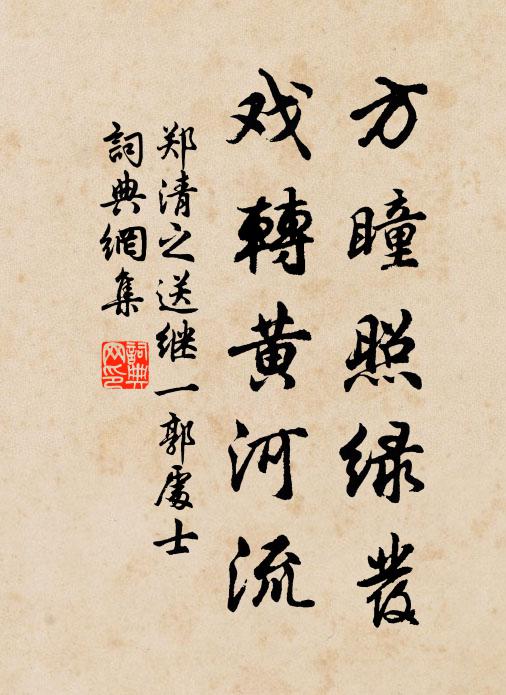 方瞳照绿發
戏轉黄河流
郑清之送继一郭處士
詞典網集
詞典網印